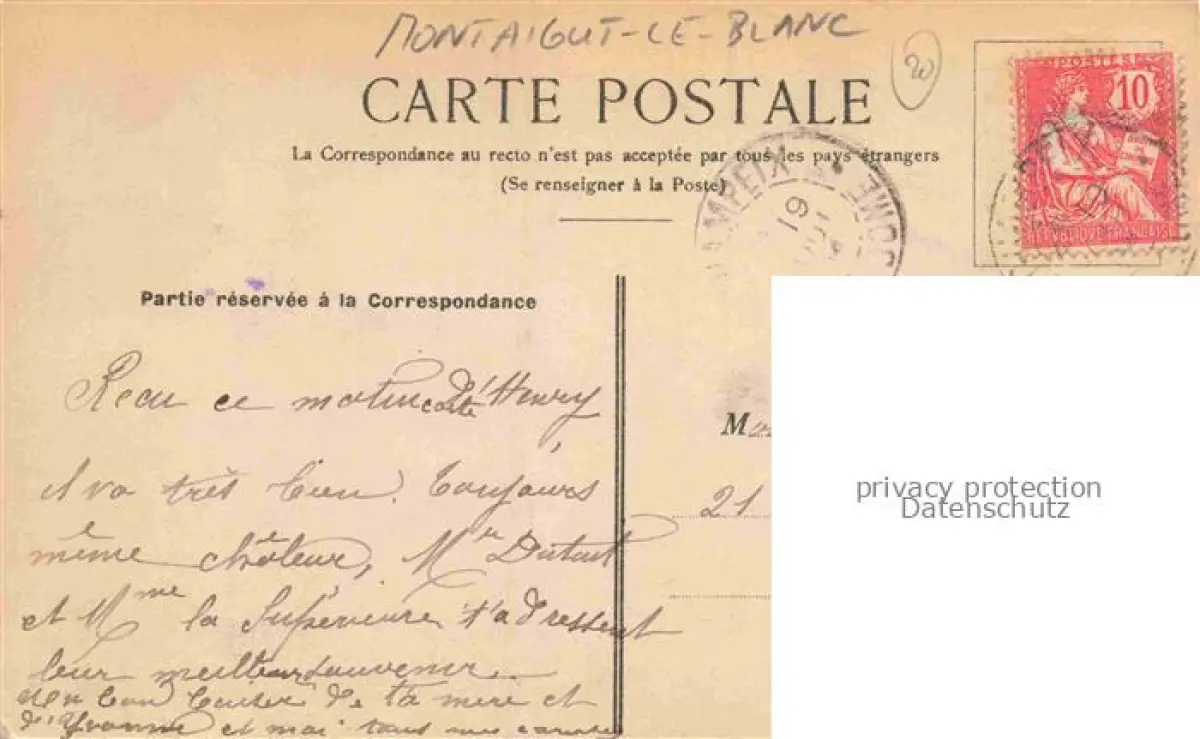 MONTAIGUT-LE-BLANC
20
CARTE POSTALE
La Correspondance au recto n'est pas acceptée par tous les pays étrangers
(Se renseigner à la Poste)
POSTES
10
RÉPUBLIQUE FRANÇAISE
CHAMPEIX
DOME
19
Partie réservée à la Correspondance
Recu ce matin carte d'Henry
il va très bien. Toujours
même chaleur, M
et Mme la Supérieure t'adressent
leur meilleur souvenir.
Un bon baiser de ta mère et
d'Yvonne et moi tous nos
M
21
privacy protection
Datenschutz